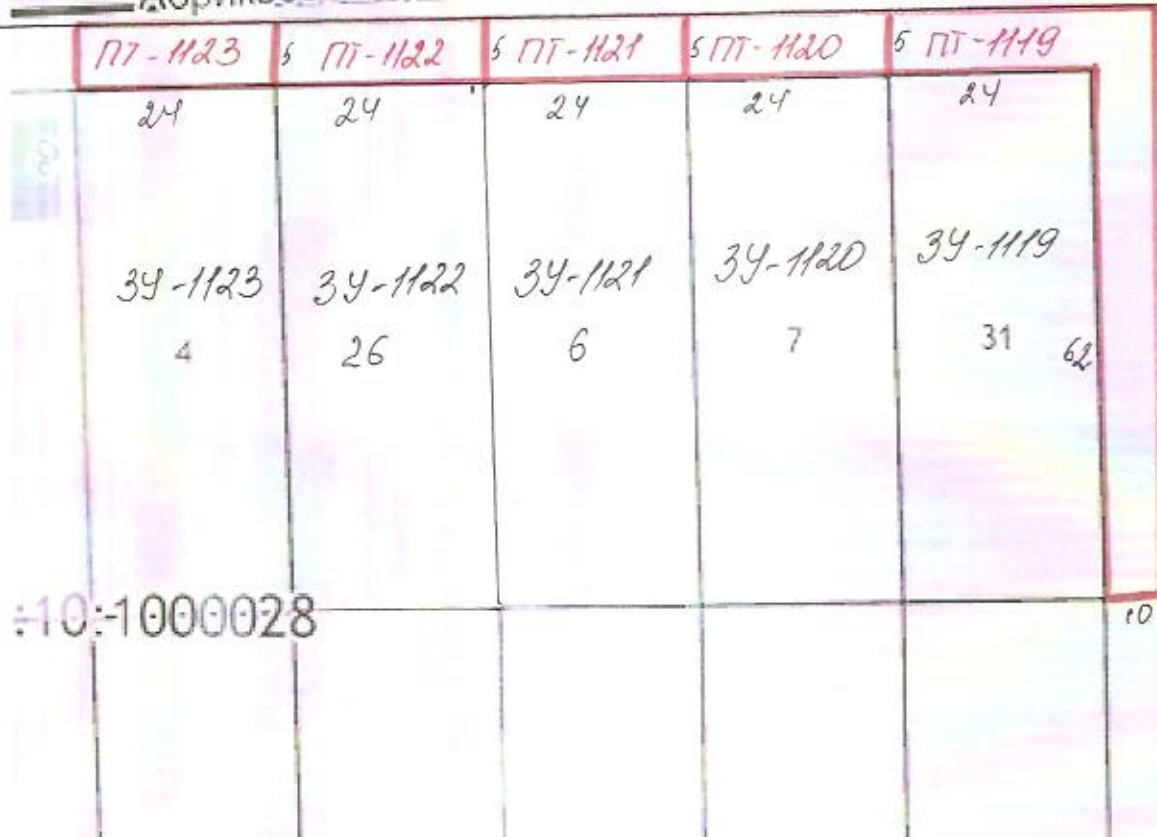 ПТ-1123 5 ПТ-1122 5 ПТ-1121 5 ПТ-1120 5 ПТ-1119
24 24 24 24 24
ЗУ-1123 ЗУ-1122 ЗУ-1121 ЗУ-1120 ЗУ-1119
4 26 6 7 31 62
:10:1000028
10